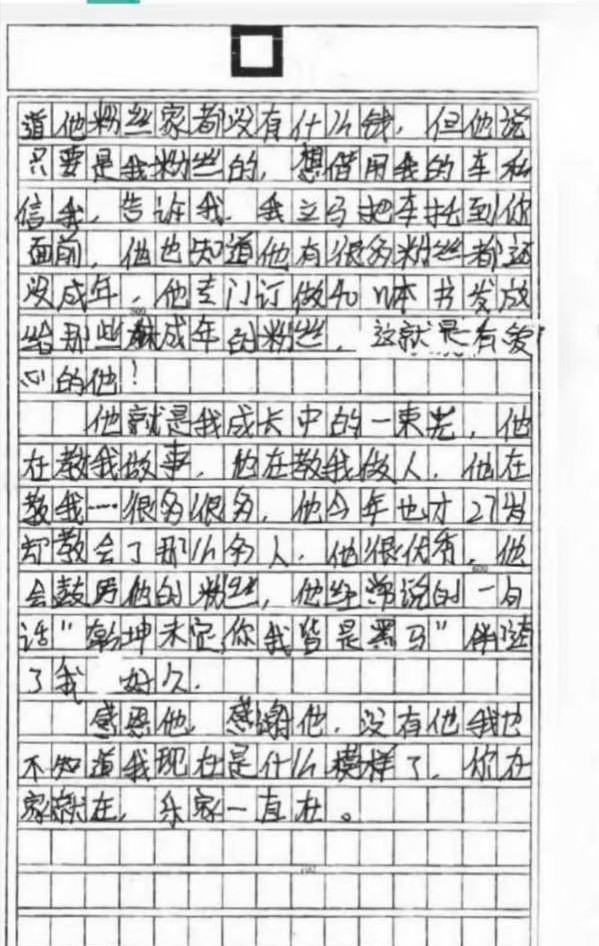 道他粉丝家都没有什么钱，但他说
只要是我粉丝的，想借用我的车私
信我，告诉我，我立马把车托到你
面前，他也知道他有很多粉丝都还
没成年，他专门订做40n本书发放
给那些未成年的粉丝，这就是有爱
心的他！
他就是我成长中的一束光，他
在教我做事，他在教我做人，他在
教我……很多很多，他今年也才27岁
却教会了那么多人，他很优秀，他
会鼓励他的粉丝，他经常说的一句
话"乾坤未定，你我皆是黑马"伴随
了我 好久.
感恩他，感谢他，没有他我也
不知道我现在是什么模样了，你在
家就在，乐家一直在。